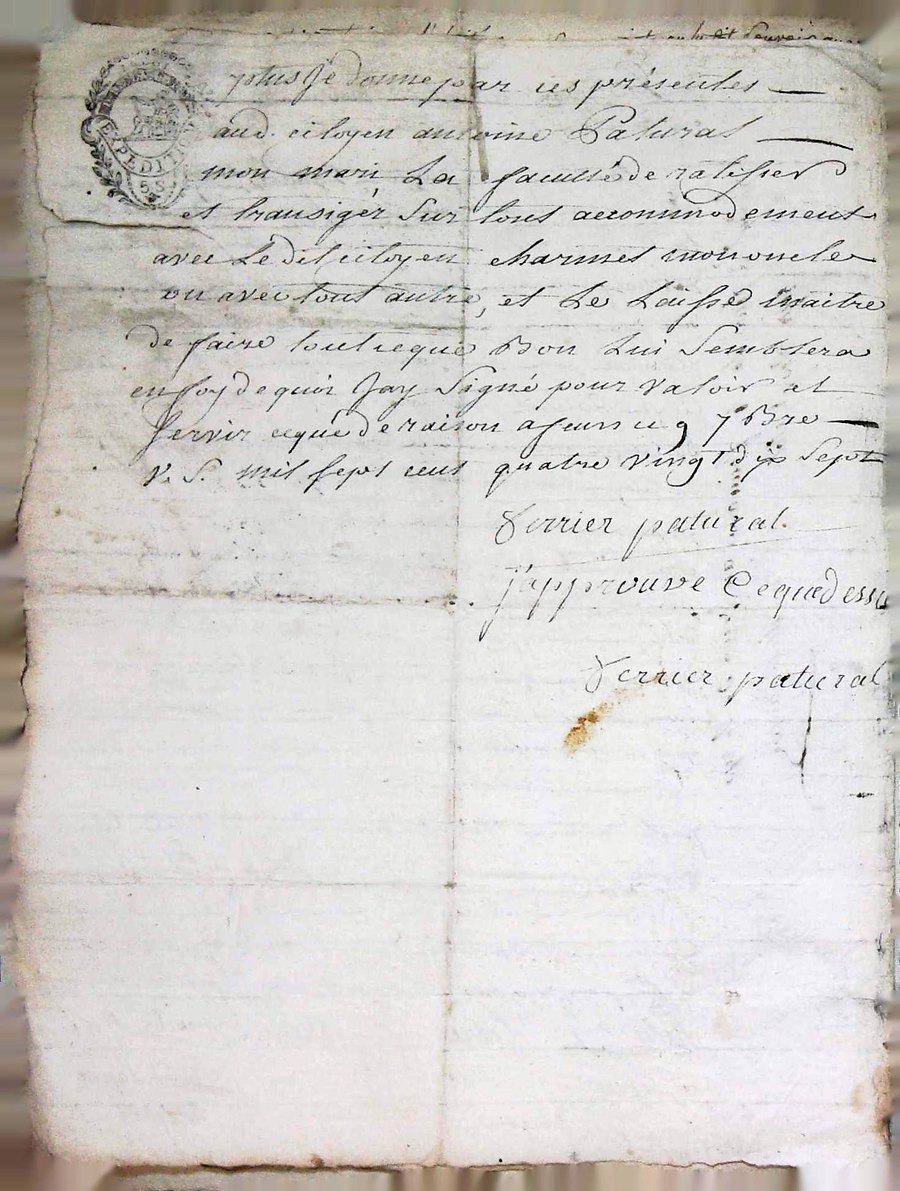 EXPEDITION
5 S.
plus je donne par ces présentes
aud. citoyen antoine Patural
mon mari La faculté de ratifier
et transigér Sur tout accommodement
avec Le dit citoyen charmet mon oncle
ou avec tout autre, et Le Laisse maitre
de faire tout ceque Bon Lui Semblera
en foy de quoi Jay Signé pour valoir et
Servir ceque de raison a feurs ce 9 7Bre
v. S. mil sept cent quatre vingt dix Sept
Verrier patural.
j'approuve Cequedessu
Verrier patural